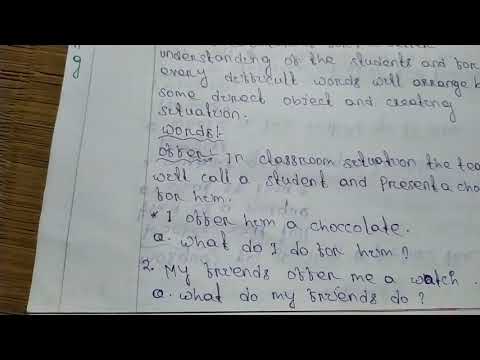 understanding of the students and for
every difficult words will arrange
some direct object and creating
situation.
words:-
offer:- In classroom situation the
will call a student and present a
for him.
* I offer him a choccolate.
Q. what do I do for him?
2. My friends offer me a watch.
Q. what do my friends do?